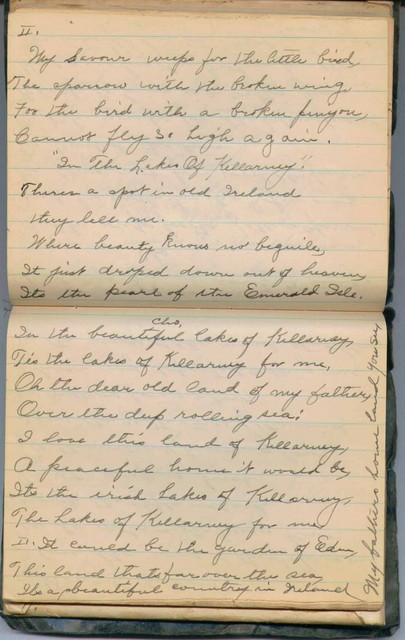 II.
My Savour weeps for the little bird,
The sparrow with the broken wing,
For the bird with a broken pinyon,
Cannot fly so high again.
"In The Lakes Of Killarney".
Theres a spot in old Ireland
they tell me.
Where beauty knows no beguile,
It just droped down out of heaven,
Its the pearl of the Emerald Isle.
Cho,
In the beautiful lakes of Killarney,
Tis the lakes of Killarney for me,
Oh the dear old land of my father,
Over the deep rolling sea!
I love this land of Killarney,
A peaceful home it would be,
Its the irish Lakes of Killarney,
The Lakes of Killarney for me
II. It could be the garden of Eden,
This land thats far over the sea,
Its a beautiful country in Ireland
My fathers home land you see